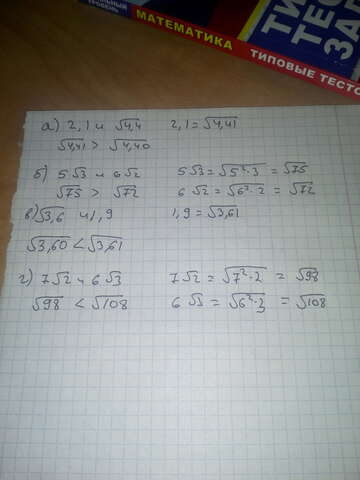 МАТЕМАТИКА
ТИПОВЫЕ ТЕСТ
а) 2,1 и √4,4 2,1 = √4,41
√4,41 > √4,40
б) 5√3 и 6√2 5√3 = √5²·3 = √75
√75 > √72 6√2 = √6²·2 = √72
в) √3,6 и 1,9 1,9 = √3,61
√3,60 < √3,61
г) 7√2 и 6√3 7√2 = √7²·2 = √98
√98 < √108 6√3 = √6²·3 = √108